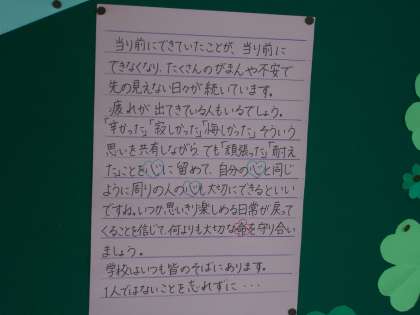 当り前にできていたことが、当り前に
できなくなり、たくさんのがまんや不安で
先の見えない日々が続いています。
疲れが出てきている人もいるでしょう。
「辛かった」「寂しかった」「悔しかった」そういう
思いを共有しながら、でも「頑張った」「耐え
た」ことを心に留めて、自分の心と同じ
ように周りの人の心も大切にできるといい
ですね。いつか、思いきり楽しめる日常が戻って
くることを信じて、何よりも大切な命を守り合い
ましょう。
学校はいつも皆のそばにあります。
1人ではないことを忘れずに・・・